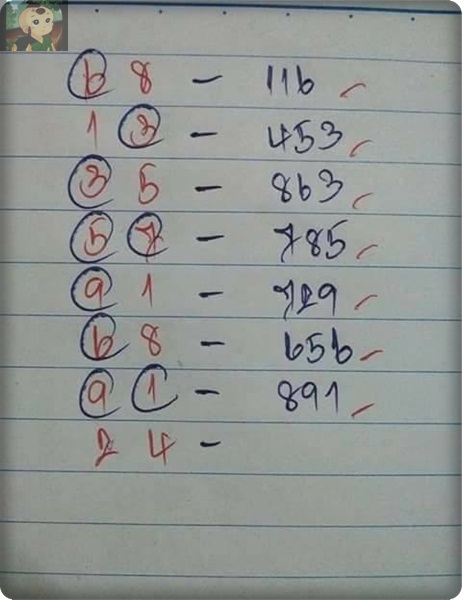 68 - 116
13 - 453
35 - 863
57 - 785
91 - 729
68 - 656
91 - 891
24 -